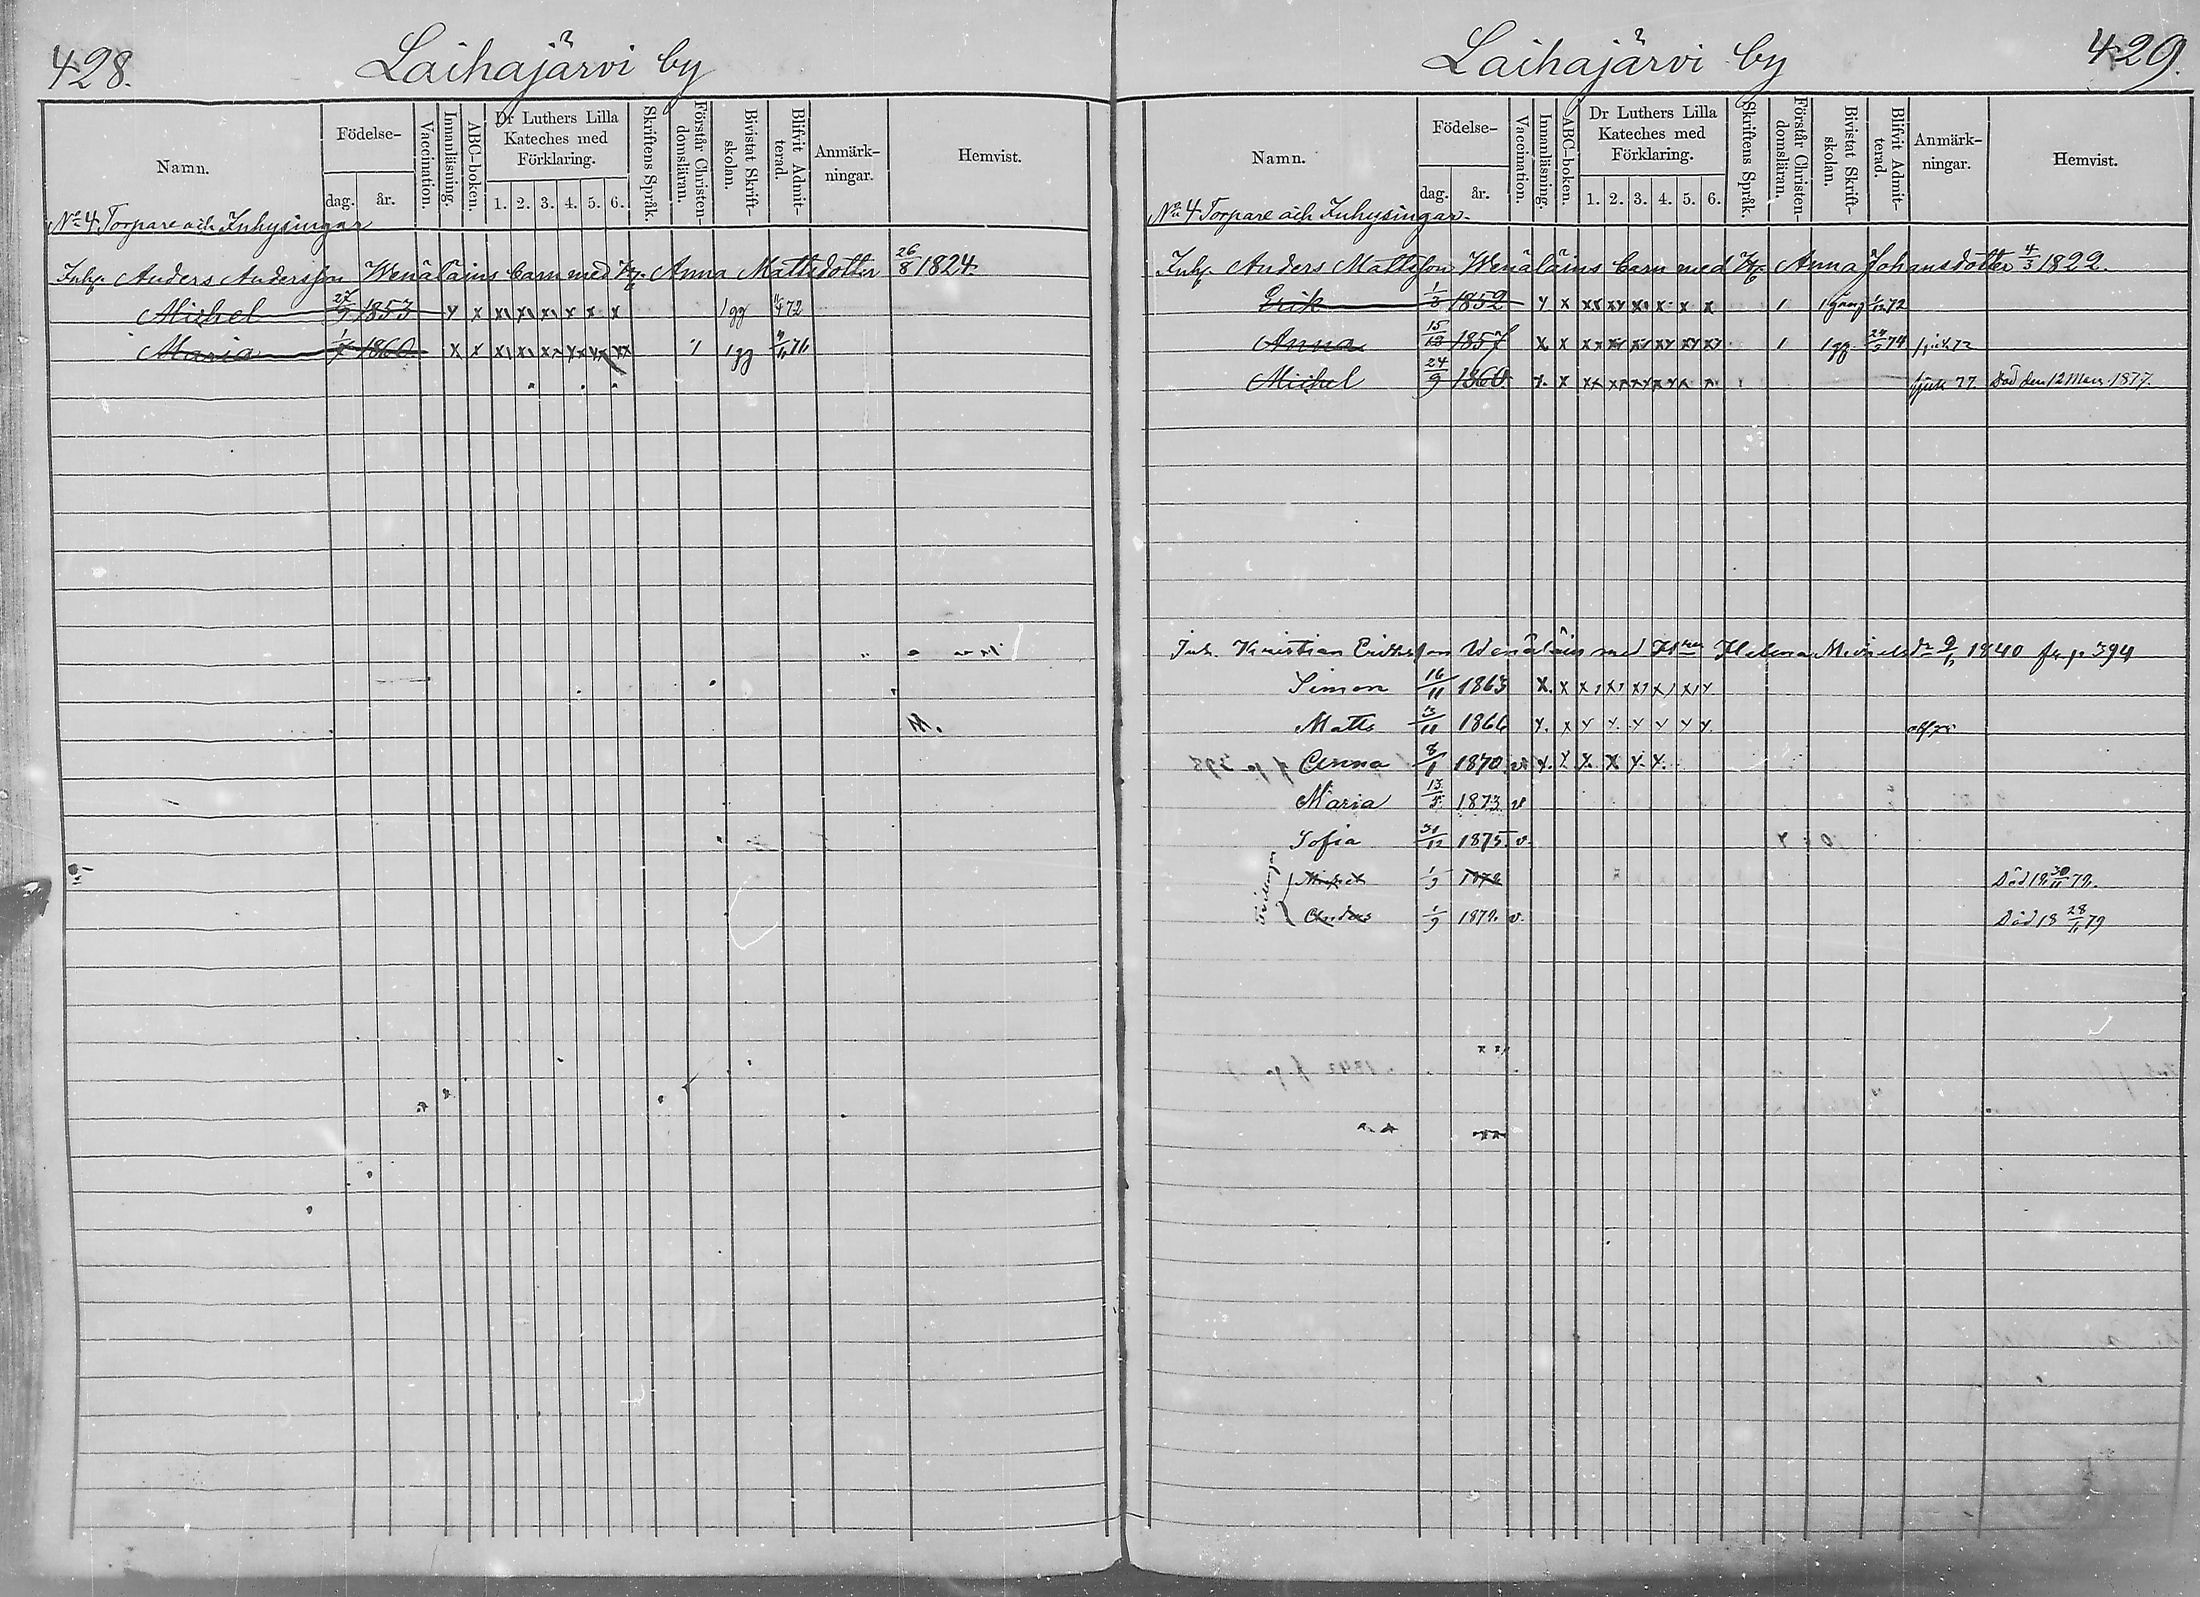 428.
Laihajärvi by
Namn. Födelse- dag. år. Vaccination. Innanläsning. ABC-boken. Dr Luthers Lilla Kateches med Förklaring. 1. 2. 3. 4. 5. 6. Skriftens Språk. Förstår Christendomsläran. Bivistat Skriftskolan. Blifvit Admitterad. Anmärkningar. Hemvist.
No 4 Torpare och Inhysingar
Inhs. Anders Andersson Wenäläins barn med H. Anna Mattsdotter 26/8 1824.
Michel 27/9 1853 x x x x x x x x 1 gg 72
Maria 1860 x x x x x x x xx 1 1 gg 76
429.
Laihajärvi by
Namn. Födelse- dag. år. Vaccination. Innanläsning. ABC-boken. Dr Luthers Lilla Kateches med Förklaring. 1. 2. 3. 4. 5. 6. Skriftens Språk. Förstår Christendomsläran. Bivistat Skriftskolan. Blifvit Admitterad. Anmärkningar. Hemvist.
No 4 Torpare och Inhysingar
Inhs. Anders Mattsson Wenäläins barn med H. Anna Johansdotter 4/3 1822.
Erik 1/3 1852 x x xx xx x x x x 1 1 gång 72
Anna 15/12 1857 x x xx xx xx xx xx xx 1 1 gg. 74
Michel 24/9 1860 x x xx x x x x x sjuk 77 Död den 12 Mars 1877.
Inh. Kristian Eriksson Wenäläin med Helena Michelsdr 1840 fr. p. 394
Simon 16/11 1863 x. x x x x x x x
Matts 1866 x. x x x x x x x.
Anna 8/1 1870 v x. x x x x x.
Maria 1873 v
Sofia 1875. v.
Tvillingar
Michel 1/9
Anders 1/9 v.
Död 18 30/11 79.
Död 18 28/11 79